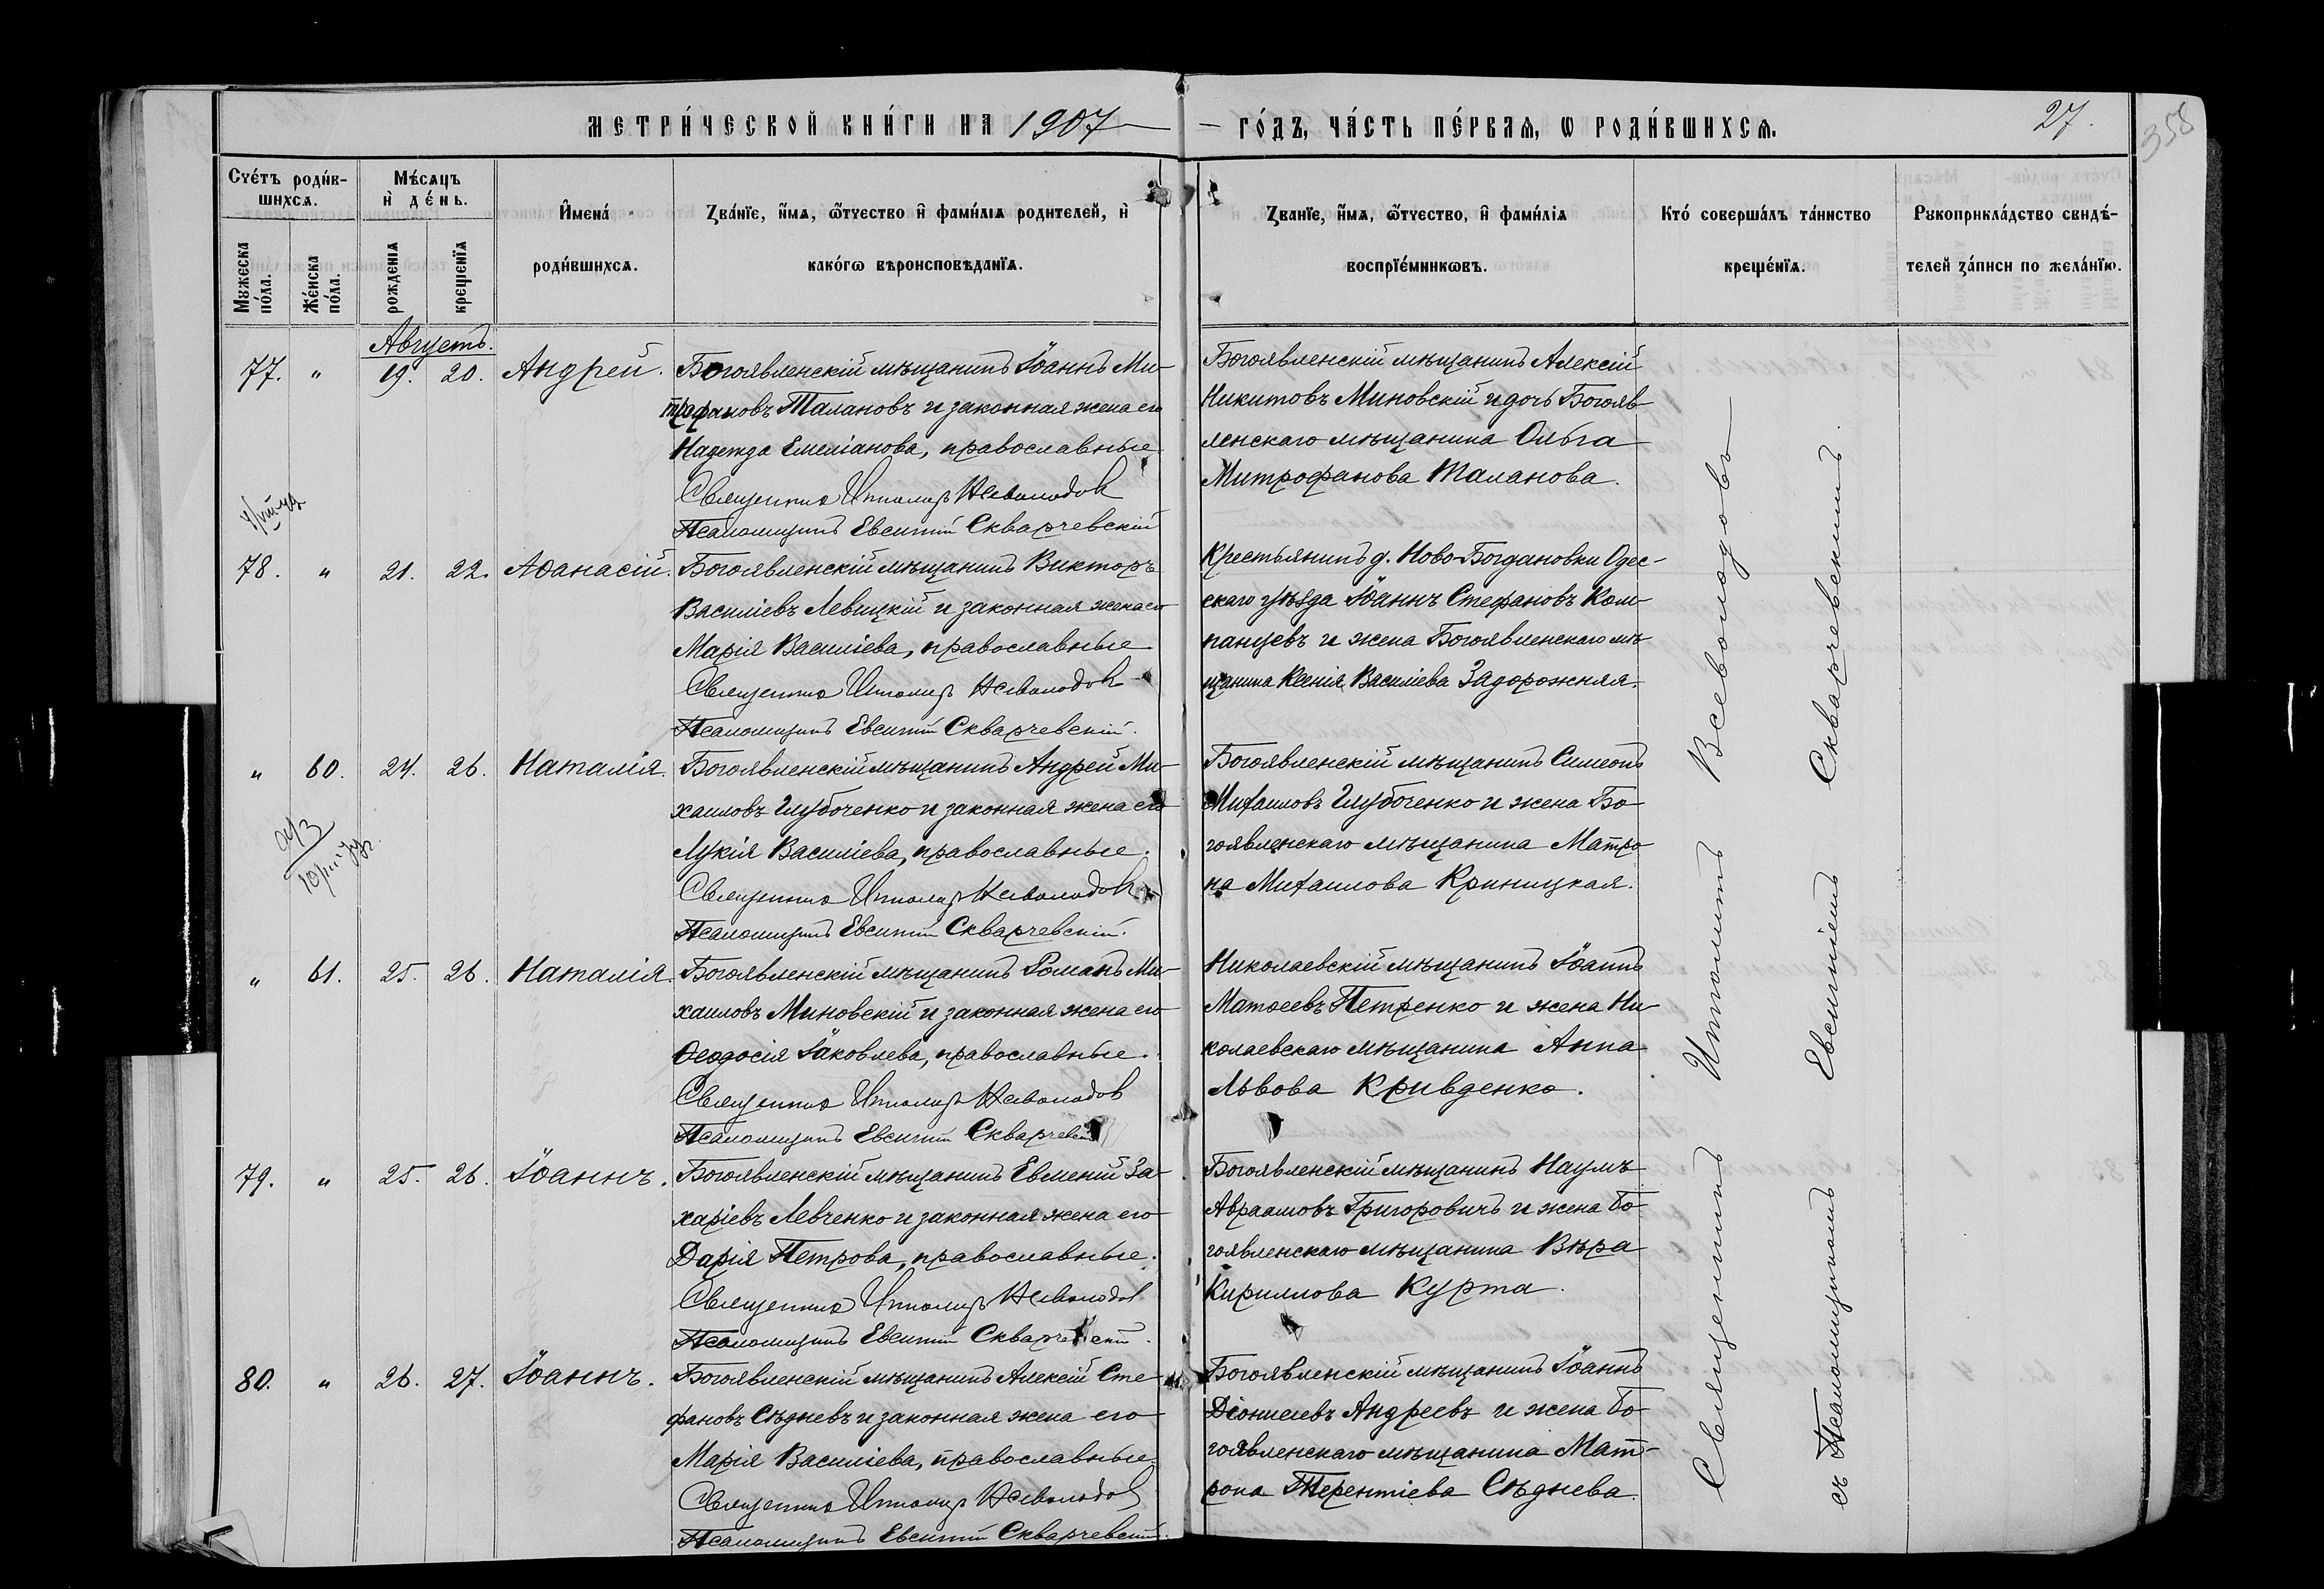 МЕТРИ́ЧЕСКОЙ КНИ́ГИ НА 1907 ГО́ДЪ, ЧА́СТЬ ПЕ́РВАѦ, Ѡ РОДИ́ВШИХСѦ.
27.
358
Счéтъ роди́вшихсѧ.
Мужеска по́ла.
Же́нска по́ла.
Мѣ́сѧцъ и҆ де́нь.
рожденїѧ
крещенїѧ
И҆мена́ роди́вшихсѧ.
Зва́нїе, и҆́мѧ, ѻ҆́тчество и҆ фами́лїѧ родителей, и҆ како́гѡ вѣроисповѣданїѧ.
Зва́нїе, и҆́мѧ, ѻ҆́тчество, и҆ фами́лїѧ воспрїе́мникѡвъ.
Кто́ соверша́лъ та́инство креще́нїѧ.
Рукоприкла́дство свидѣ́телей за́писи по жела́нїю.
Августъ.
77. " 19. 20. Андрей.
Богоявленскій мѣщанинъ Іоаннъ Ми-
трофановъ Талановъ и законная жена его
Надежда Емеліанова, православные
Священникъ Ипполитъ Всеволодовъ
Псаломщикъ Евсигній Скварчевскій
Богоявленскій мѣщанинъ Алексій
Никитовъ Миновскій и дочь Богояв-
ленскаго мѣщанина Ольга
Митрофанова Таланова.
78. " 21. 22. Аѳанасій.
Богоявленскій мѣщанинъ Викторъ
Василіевъ Левицкій и законная жена его
Марія Василіева, православные
Священникъ Ипполитъ Всеволодовъ
Псаломщикъ Евсигній Скварчевскій.
Крестьянинъ д. Ново-Богдановки Одес-
скаго уѣзда Іоаннъ Стефановъ Ком-
панцевъ и жена Богоявленскаго мѣ-
щанина Ксенія Василіева Задорожняя.
" 60. 24. 26. Наталія.
Богоявленскій мѣщанинъ Андрей Ми-
хаиловъ Глубоченко и законная жена его
Лукія Василіева, православные.
Священникъ Ипполитъ Всеволодовъ
Псаломщикъ Евсигній Скварчевскій.
Богоявленскій мѣщанинъ Симеонъ
Михаиловъ Глубоченко и жена Бо-
гоявленскаго мѣщанина Матро
на Михаилова Криницкая.
" 61. 25. 26. Наталія.
Богоявленскій мѣщанинъ Романъ Ми-
хаиловъ Миновскій и законная жена его
Ѳеодосія Іаковлева, православные.
Священникъ Ипполитъ Всеволодовъ
Псаломщикъ Евсигній Скварчевскій
Николаевскій мѣщанинъ Іоаннъ
Матѳеевъ Петренко и жена Ни-
колаевскаго мѣщанина Анна
Львова Кривденко.
79. " 25. 26. Іоаннъ.
Богоявленскій мѣщанинъ Евменій За-
харіевъ Левченко и законная жена его
Дарія Петрова, православные.
Священникъ Ипполитъ Всеволодовъ
Псаломщикъ Евсигній Скварчевскій.
Богоявленскій мѣщанинъ Наумъ
Авраамовъ Григоровичъ и жена Бо-
гоявленскаго мѣщанина Вѣра
Кириллова Курта.
80. " 26. 27. Іоаннъ.
Богоявленскій мѣщанинъ Алексій Сте-
фановъ Сѣдневъ и законная жена его
Марія Василіева, православные.
Священникъ Ипполитъ Всеволодовъ
Псаломщикъ Евсигній Скварчевскій.
Богоявленскій мѣщанинъ Іоаннъ
Діонисіевъ Андреевъ и жена Бо-
гоявленскаго мѣщанина Мат-
рона Терентіева Сѣднева.
Священникъ Ипполитъ Всеволодовъ
съ Псаломщикомъ Евсигніемъ Скварчевскимъ.